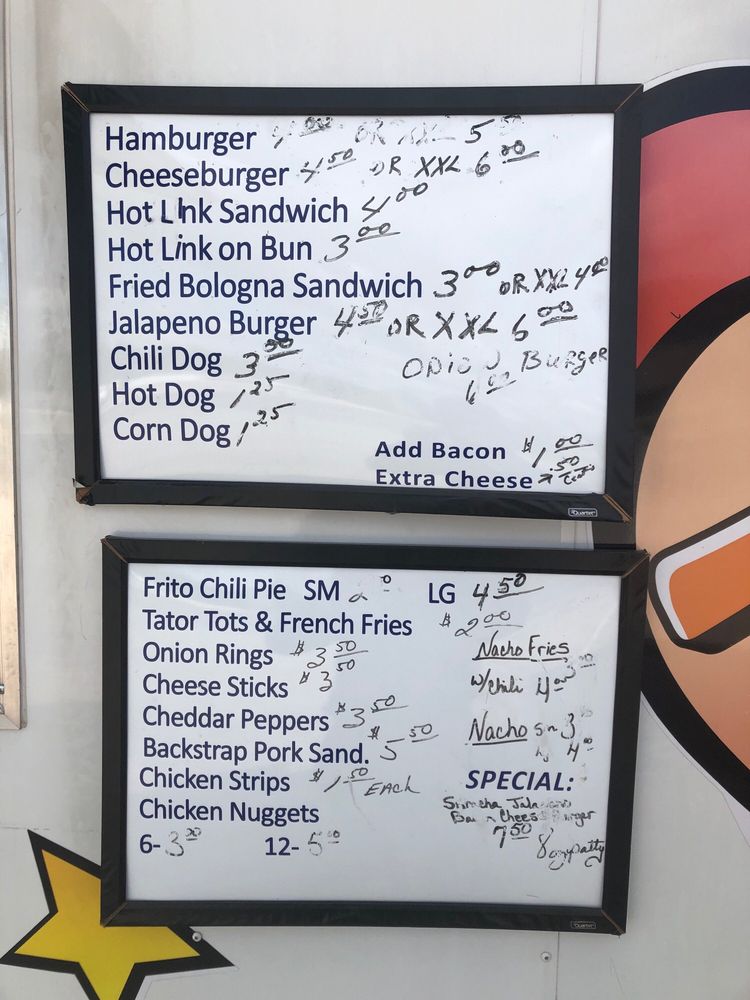 Hamburger 4.00 OR XXL 5
Cheeseburger 4.50 OR XXL 6.00
Hot Link Sandwich 4.00
Hot Link on Bun 3.00
Fried Bologna Sandwich 3.00 OR XXL 4.00
Jalapeno Burger 4.50 OR XXL 6.00
Chili Dog 3.00
Onion Burger
Hot Dog 1.25
Corn Dog 1.25
Add Bacon $1.00
Extra Cheese .50
Quartet
Frito Chili Pie SM LG 4.50
Tator Tots & French Fries $2.00
Onion Rings $3.50
Nacho Fries
Cheese Sticks $3.50
w/chili 4.00
Cheddar Peppers $3.50
Nacho Sm 3
Backstrap Pork Sand. $5.50
4.00
Chicken Strips $1.50 EACH
SPECIAL:
Chicken Nuggets
Sriracha Jalapeno
Bacon Cheese Burger
7.50
6- 3.00 12- 5.00
8 ozypatty
Quartet